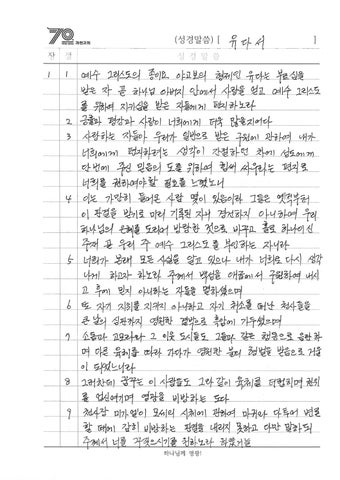 70 과천교회
(성경말씀) [ 유다서 ]
장 절 성 경 말 씀
1 1 예수 그리스도의 종이요 야고보의 형제인 유다는 부르심을
받은 자 곧 하나님 아버지 안에서 사랑을 얻고 예수 그리스도
를 위하여 지키심을 받은 자들에게 편지하노라
2 긍휼과 평강과 사랑이 너희에게 더욱 많을지어다
3 사랑하는 자들아 우리가 일반으로 받은 구원에 관하여 내가
너희에게 편지하려는 생각이 간절하던 차에 성도에게
단번에 주신 믿음의 도를 위하여 힘써 싸우라는 편지로
너희를 권하여야 할 필요를 느꼈노니
4 이는 가만히 들어온 사람 몇이 있음이라 그들은 옛적부터
이 판결을 받기로 미리 기록된 자니 경건하지 아니하여 우리
하나님의 은혜를 도리어 방탕한 것으로 바꾸고 홀로 하나이신
주재 곧 우리 주 예수 그리스도를 부인하는 자니라
5 너희가 본래 모든 사실을 알고 있으나 내가 너희로 다시 생각
나게 하고자 하노라 주께서 백성을 애굽에서 구원하여 내시
고 후에 믿지 아니하는 자들을 멸하셨으며
6 또 자기 지위를 지키지 아니하고 자기 처소를 떠난 천사들을
큰 날의 심판까지 영원한 결박으로 흑암에 가두셨으며
7 소돔과 고모라와 그 이웃 도시들도 그들과 같은 행동으로 음란하
며 다른 육체를 따라 가다가 영원한 불의 형벌을 받음으로 거울
이 되었느니라
8 그러한데 꿈꾸는 이 사람들도 그와 같이 육체를 더럽히며 권위
를 업신여기며 영광을 비방하는도다
9 천사장 미가엘이 모세의 시체에 관하여 마귀와 다투어 변론
할 때에 감히 비방하는 판결을 내리지 못하고 다만 말하되
주께서 너를 꾸짖으시기를 원하노라 하였거늘
하나님께 영광!